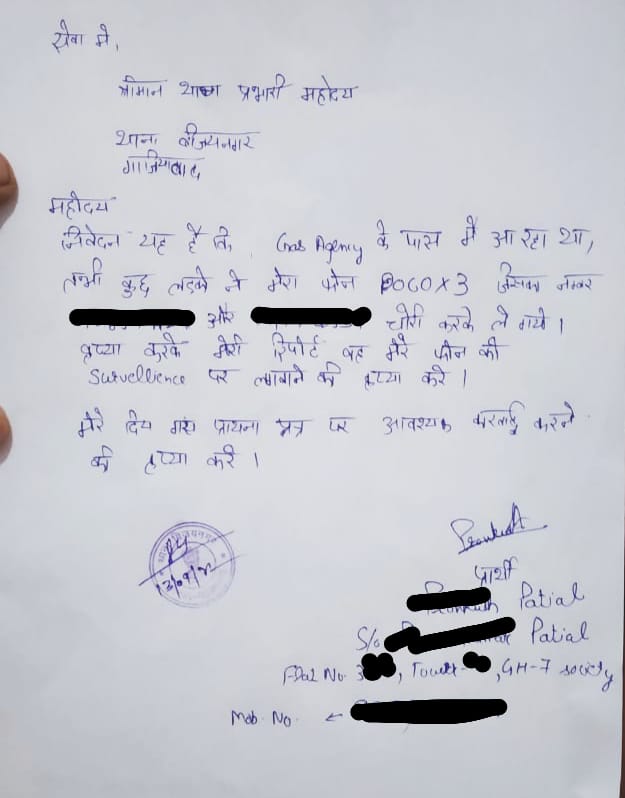 सेवा मे,
श्रीमान थाना प्रभारी महोदय
थाना विजयनगर
गाजियाबाद
महोदय
निवेदन यह है कि, Gas Agency के पास मैं आ रहा था,
तभी कुछ लडको ने मेरा फोन POCO X3 जिसका नम्बर
और चोरी करके ले गये।
कृप्या करके मेरी रिपोर्ट वह मेरे फोन को
Survellience पर लगाने की कृप्या करे।
मेरे दिय गए प्रायना पत्र पर आवश्यक करवाई करने
की कृप्या करे।
प्रार्थी
Patial
S/o Patial
Flat No. 3, Tower-, GH-7 society
Mob. No.